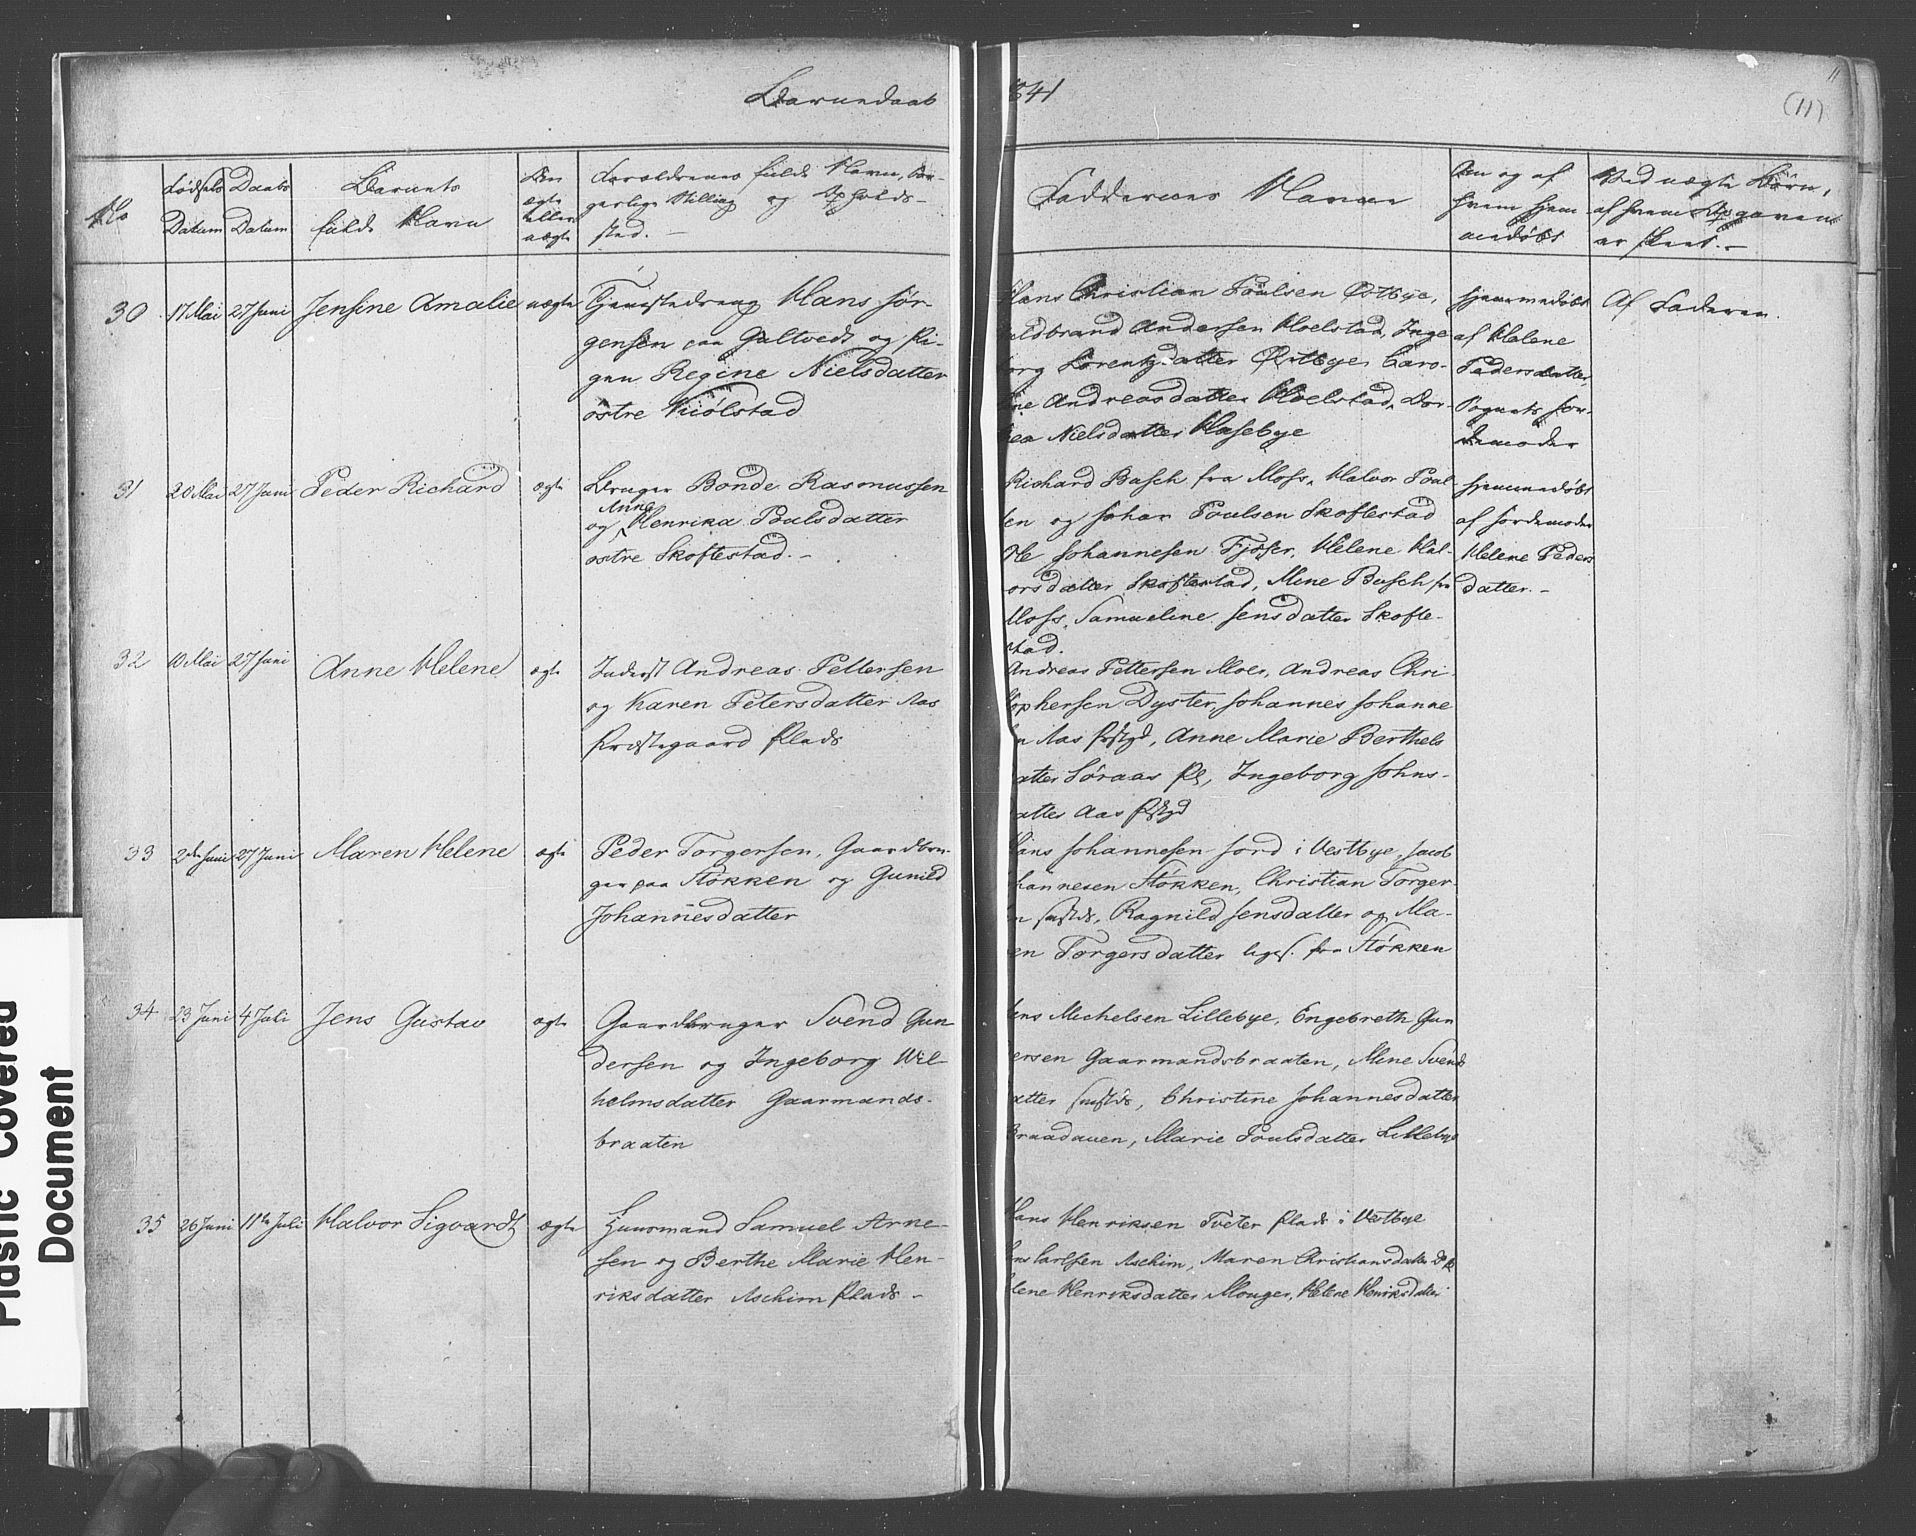 Barnedaab
1841
11
(11)
No
Fødsels Datum
Daabs Datum
Barnets fulde Navn
Om ægte eller uægte
Forældrenes fulde Navn, Bor-
gerlige Stilling og Opholds-
sted.
Faddernes Navne
Om og af hvem hjem medøbt
Ved uægte Børn,
af hvem Opgaven
er skeet.
30 17 Mai 27 Juni Jensine Amalie uægte
Tjenestedreng Hans Jør-
gensen paa Galtvedt og Pi-
gen Regine Nielsdatter
østre Kiölstad
Hans Christian Poulsen Østbye,
Guldbrand Andersen Hoelstad, Inge
borg Lorentzdatter Østbye, Caro-
line Andreasdatter Hoelstad, Dor-
thea Nielsdatter Hasebye
hjemmedøbt
af Helene
Pedersdatter,
Sognets Jor-
demoder
Af Faderen.
31 20 Mai 27 Juni Peder Richard ægte
Bruger Bonde Rasmussen
og Anne Henrika Poulsdatter
østre Skoftestad.
Richard Basch fra Moss, Halvor Poul-
sen og Johan Poulsen Skoftestad
Ole Johannesen Fjøser, Helene Hal-
vorsdatter Skoftestad, Mene Basch fra
Moss, Samueline Jensdatter Skofte-
stad.
hjemmedøbt
af Jordemoder
Helene Peders
datter.
32 10 Mai 27 Juni Anne Helene ægte
Inderst Andreas Pettersen
og Karen Petersdatter Aas
Præstegaard Plads
Andreas Pettersen Moer, Andreas Chri-
stophersen Dyster, Johannes Johanne
sen Aas Prstgd, Anne Marie Berthels
datter Søraas Pl, Ingeborg Johns-
datter Aas Prstgd
33 2den Juni 27 Juni Maren Helene ægte
Peder Torgersen, Gaardbru-
ger paa Støkken og Gunild
Johannesdatter
Hans Johannesen Jord i Vestbye, Jacob
Johannesen Støkken, Christian Torger-
sen sammestds, Ragnild Jensdatter og Ma-
ren Torgersdatter liges. fra Støkken
34 23 Juni 4 Juli Jens Gustav ægte
Gaardbruger Svend Gun
dersen og Ingeborg Wil-
helmsdatter Gaarmands-
braaten
Jens Michelsen Lillebye, Engebreth Gun
dersen Gaarmandsbraaten, Mine Svends
datter samstds, Christine Johannesdatter
Braadauen, Marie Poulsdatter Lillebye
35 26 Juni 11te Juli Halvor Sigvardt ægte
Huusmand Samuel Arne-
sen og Berthe Marie Hen-
riksdatter Aschim Plads
Hans Henriksen Tveter Plads i Vestbye
Jens Carlsen Aschim, Maren Christiansdatter
Helene Henriksdatter Monger, Helene Henriksdatter
Plastic Covered
Document